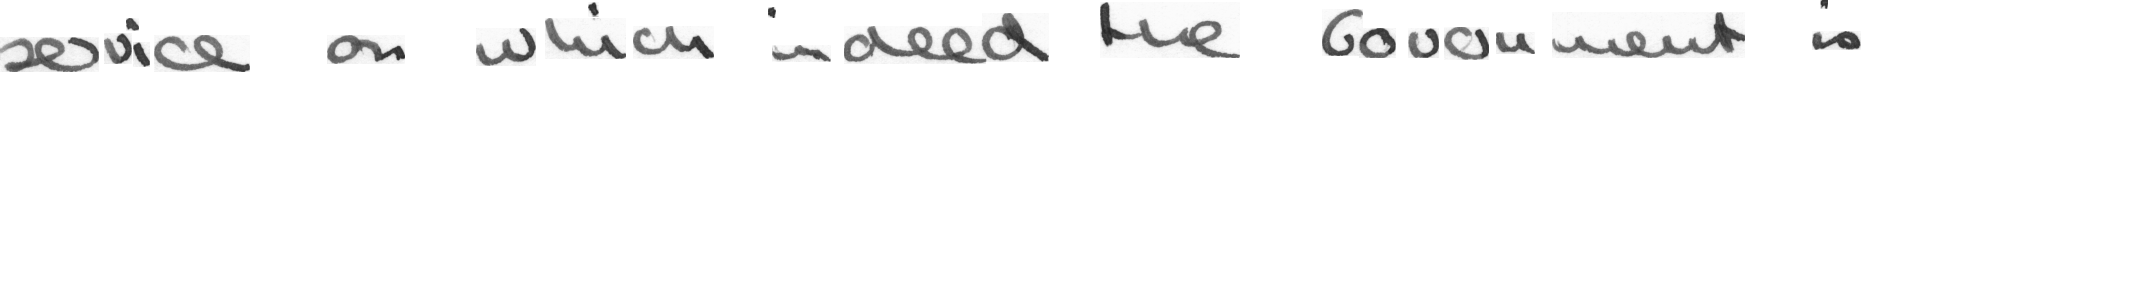 service on which indeed the Government is